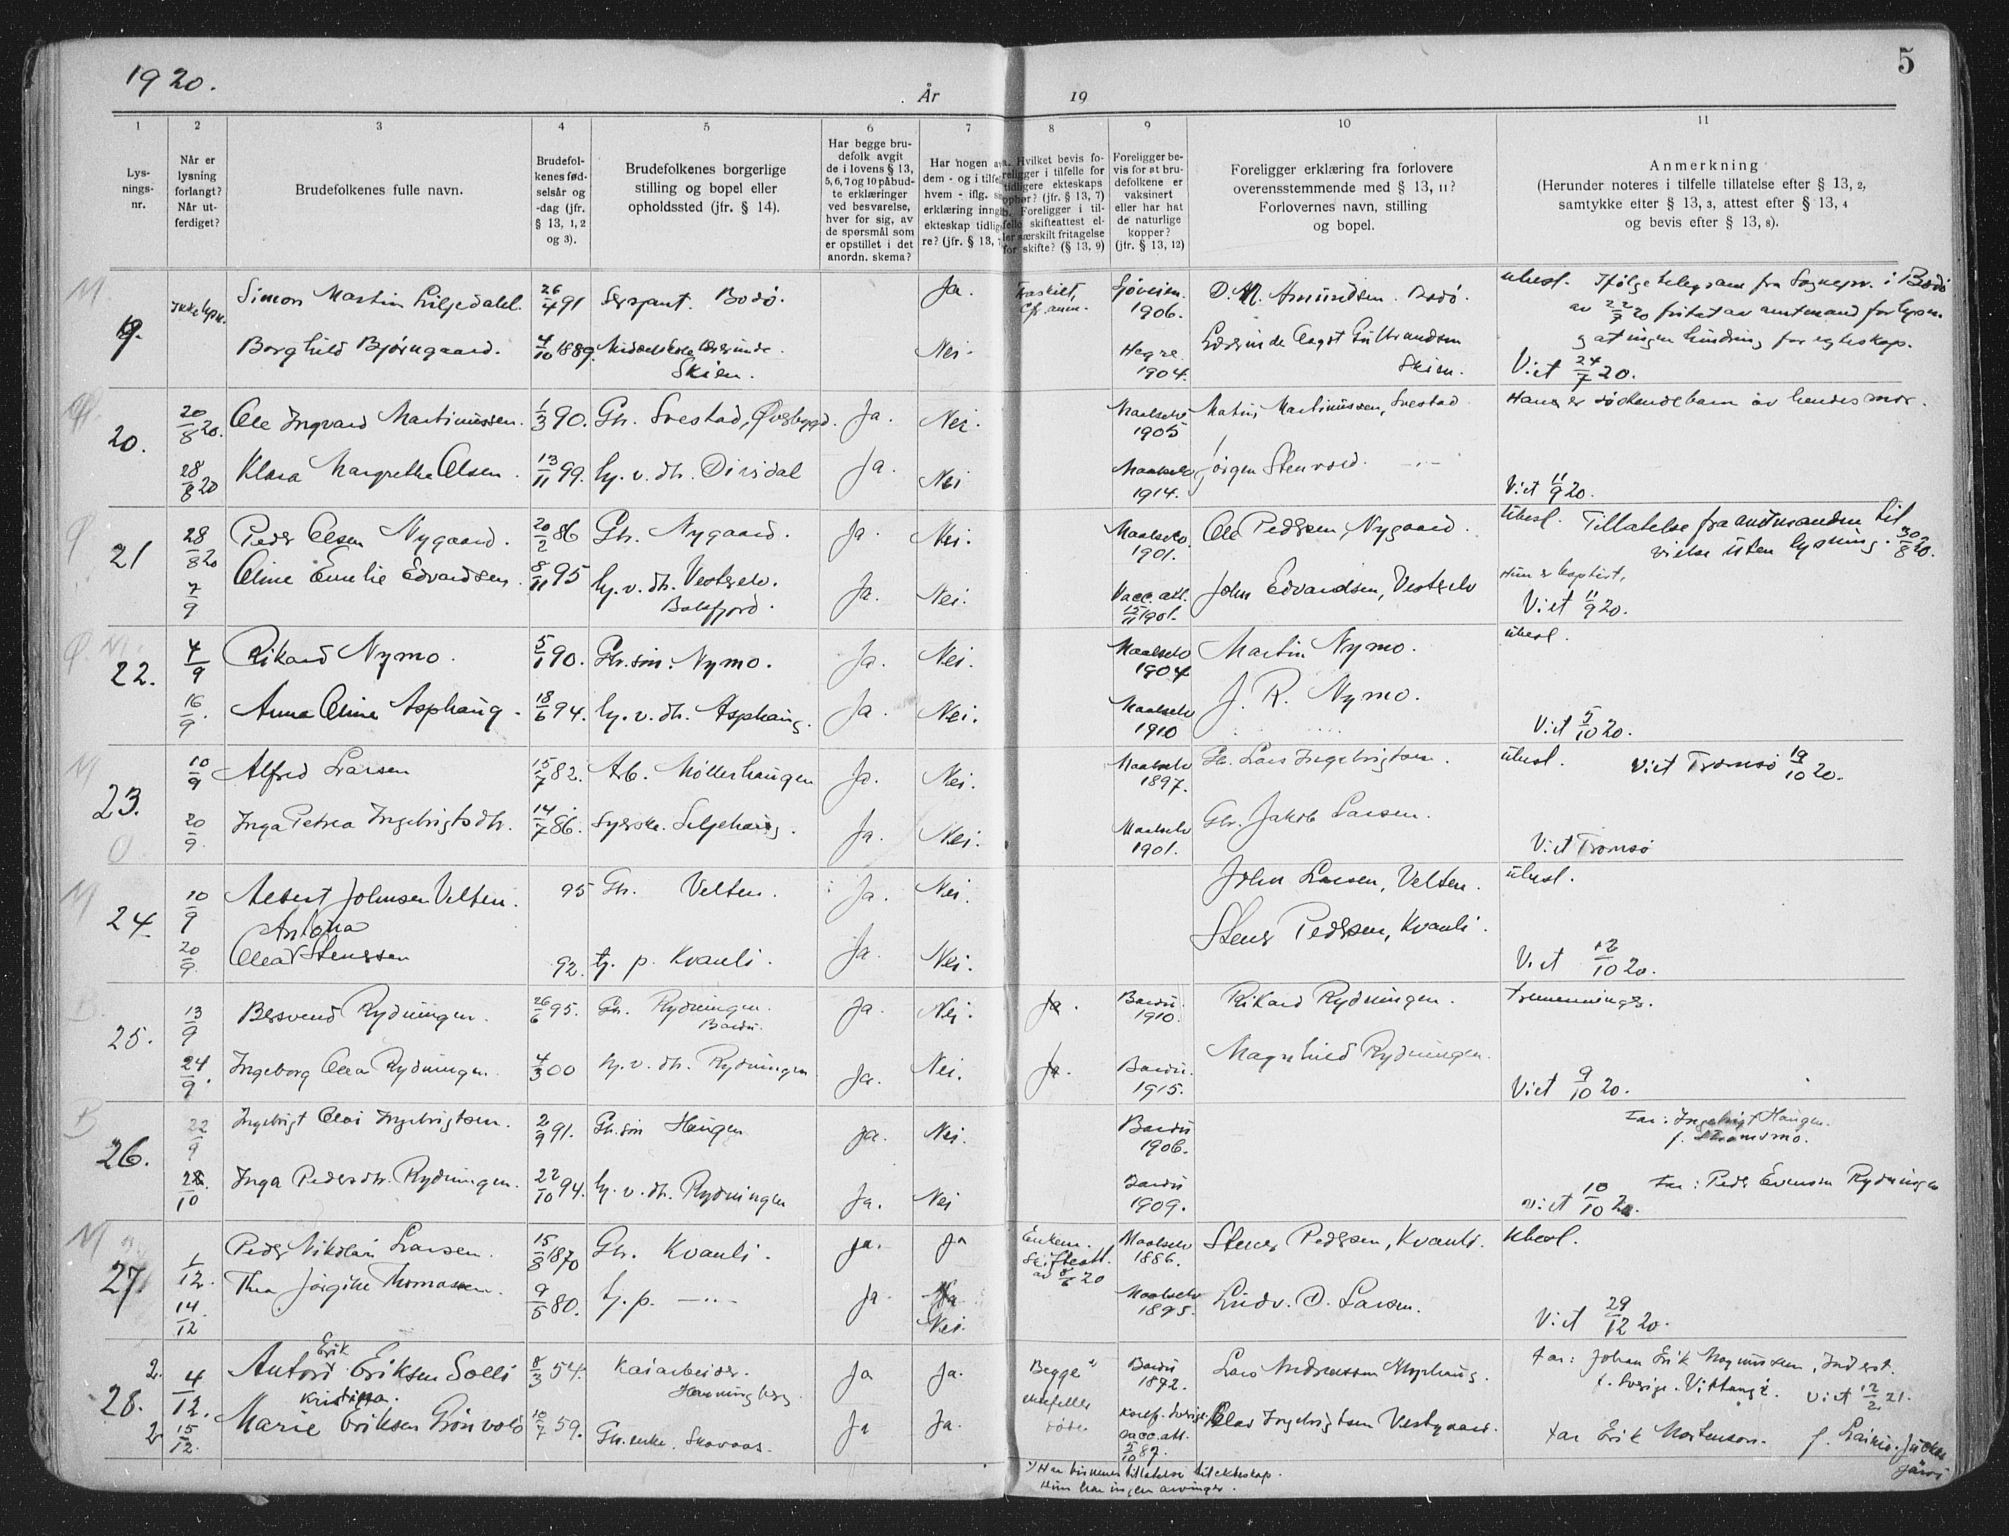 1920.
År
19
5
1
2
3
4
5
6
7
8
9
10
11
Lys-
nings-
nr.
Når er
lysning
forlangt?
Når ut-
ferdiget?
Brudefolkenes fulle navn.
Brudefol-
kenes fød-
selsår og
-dag (jfr.
§ 13, 1, 2
og 3).
Brudefolkenes borgerlige
stilling og bopel eller
opholdssted (jfr. § 14).
Har begge bru-
defolk avgit
de i lovens § 13,
5, 6, 7 og 10 påbud-
te erklæringer
ved besvarelse,
hver for sig, av
de spørsmål som
er opstillet i det
anordn. skema?
Har nogen av
dem - og i tilfelle
hvem - iflg.
erklæring inngåt
ekteskap tidlige-
re? (jfr. § 13,
a. Hvilket bevis fo-
religger i tilfelle for
tidligere ekteskaps
ophør? (jfr. § 13, 7)
b. Foreligger i til-
felle skifteattest el-
ler særskilt fritagelse
for skifte? (§ 13, 9)
Foreligger be-
vis for at bru-
defolkene er
vaksinert
eller har hat
de naturlige
kopper?
(jfr. § 13, 12)
Foreligger erklæring fra forlovere
overensstemmende med § 13, 11?
Forlovernes navn, stilling
og bopel.
Anmerkning
(Herunder noteres i tilfelle tillatelse efter § 13, 2,
samtykke efter § 13, 3, attest efter § 13, 4
og bevis efter § 13, 8).
M
19.
Ikke lysn.
Simon Martin Liljedahl.
26/4 91
Sersjant. Bodø.
Ja.
Fraskilt,
Cfr. anm.
Gjøvein.
1906.
D. M. Amundsen. Bodø.
ubesl. Ifølge telegram fra Sognepr. i Bodø
av 22/7 20 fritat av amtmand for lysn.
og at ingen hindring for egteskap.
Borghild Bjørngaard.
4/10 1889.
Middelskolelærerinde.
Skien.
Nei.
Hegre
1904.
Lærerinde Aagot Gulbrandsen
Skien.
Viet 24/7 20.
20.
20/8 20.
Ole Ingvard Martinussen.
1/3 90.
Gbr. Svestad, Øverbygd.
Ja.
Nei.
Maalselv
1905
Matin Martinussen, Svestad
Han er søskendebarn av hendes mor.
28/8 20
Klara Margrethe Olsen.
13/11 99.
hj. v. dtr. Dividal
Ja.
Nei
Maalselv
1914.
Jørgen Stenvold. -"-
Viet 11/9 20.
21
28/8 20
Peder Olsen Nygaard.
20/2 86
Gbr. Nygaard.
Ja.
Nei.
Maalselv.
1901.
Ole Pedersen, Nygaard.
Ubesl. Tillatelse fra amtmanden til
vielse uten lysning. 30/8 20.
7/9
Oline Emelie Edvardsen.
8/11 95
hj. v. dtr. Vestelv.
Balsfjord.
Ja.
Nei.
Vacc. att.
15/11 1901.
John Edvardsen, Vestelv
Hun er baptist.
Viet 11/9 20.
22.
4/9
Rikard Nymo.
5/1 90.
Gbr. søn: Nymo.
Ja.
Nei.
Maalselv
1904
Martin Nymo.
ubesl.
16/9.
Anna Oline Asphaug.
18/6 94.
hj. v. dtr. Asphaug.
Ja.
Nei.
Maalselv
1910
J. R. Nymo.
Viet 5/10 20.
M
23.
10/9
Alfred Larsen
15/7 82.
Arb. Møllerhaugen
Ja.
Nei.
Maalselv
1897.
Gbr. Lars Ingebrigtsen.
ubesl. Viet Tromsø 19/10 20.
20/9.
Inga Petrea Ingebrigtsdtr.
14/7 86.
Syerske. Seljehaug.
Ja.
Nei.
Maalselv
1901.
Gbr. Jakob Larsen.
Viet Tromsø
M
24.
10/9
Albert Johnsen Velten.
95
Gbr. Velten.
Ja.
Nei.
John Larsen, Velten.
ubesl.
Antona
20/9.
Olea Stenersen
92.
tj. p. Kvanli.
Ja.
Nei.
Stener Pedersen, Kvanli.
Viet 12/10 20.
B.
25.
13/9
Bersvend Rydningen.
26/6 95.
Gbr. Rydningen.
Bardu.
Ja.
Nei.
Ja.
Bardu.
1910.
Rikard Rydningen.
tremenninger.
24/9.
Ingeborg Olea Rydningen.
4/3 00
hj. v. dtr. Rydningen
Ja.
Nei.
Ja.
Bardu.
1915.
Magnhild Rydningen.
Viet 9/10 20.
B
26.
22/9
Ingebrigt Olai Ingebrigtsen.
2/9 91.
Gbr. søn Haugen
Ja.
Nei.
Bardu
1906.
Far: Ingebrigt Haugen.
f. Strømsmo.
28./10
Inga Pedersdtr. Rydningen.
22/10 94.
hj. v. dtr. Rydningen
Ja.
Nei
Bardu
1909.
Far: Peder Evensen Rydningen
viet 10/10 20.
M
27.
1/12.
Peder Nikolai Larsen.
15/8 1870
Gbr. Kvanli.
Ja.
Ja
Enkem.
Skifteatt.
av 8/6 20
Maalselv
1886.
Stener Pedersen, Kvanli.
Ubesl.
14/12
Thea Jørgine Thomassen.
9/5 80.
tj. p. -"-
Ja
Nei.
Maalselv
1895.
Ludv. D. Larsen.
Viet 29/12 20.
28.
2.
4/12.
Erik
Anton Eriksen Solli
8/3 54.
Kaiarbeider.
Henningberg
Ja
Ja.
Begge
ektefeller
døde.
Bardu
1872.
Lars Andreassen Myrhaug.
Far: Johan Erik Magnussen, Inderst.
f. Sverige. Vittangi. Viet 12/2 21.
2
15/12.
Kristina.
Marie Eriksen Grønvold
10/7 59.
Gbr. enke. Skovaas.
Ja
Ja.
Konf. Sverige.
vacc. att.
5/10 87.
Olav Ingebrigtsen Vestgaard.
Far Erik Mortensson. f. Lainio. Jukkas
järvi
1) Har biskopens tillatelse til ekteskap.
Hun har ingen arvinger.